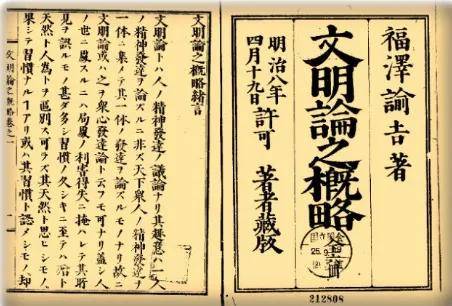 福澤諭吉著
文明論之概略
全六冊
明治八年
四月十九日許可 著者藏版
212808
文明論之概略緒言
文明論トハ人ノ精神發達ノ議論ナリ其趣意ハ一人
ノ精神發達ヲ論ズルニ非ズ天下衆人ノ精神發達ヲ
一体ニ集メテ其一体ノ發達ヲ論ズルモノナリ故ニ
文明論或ハ之ヲ衆心發達論ト云フモ可ナリ蓋シ人
ノ世ニ處スルニハ局處ノ利害得失ニ掩ハレテ其所
見ヲ誤ルモノ甚ダ多シ習慣ノ久シキニ至テハ殆ト
天然ト人為トヲ區別ス可ラズ其天然ト思ヒシモノ
果シテ習慣ナルヿアリ或ハ其習慣ト認メシモノ却
文明論之概略卷之一